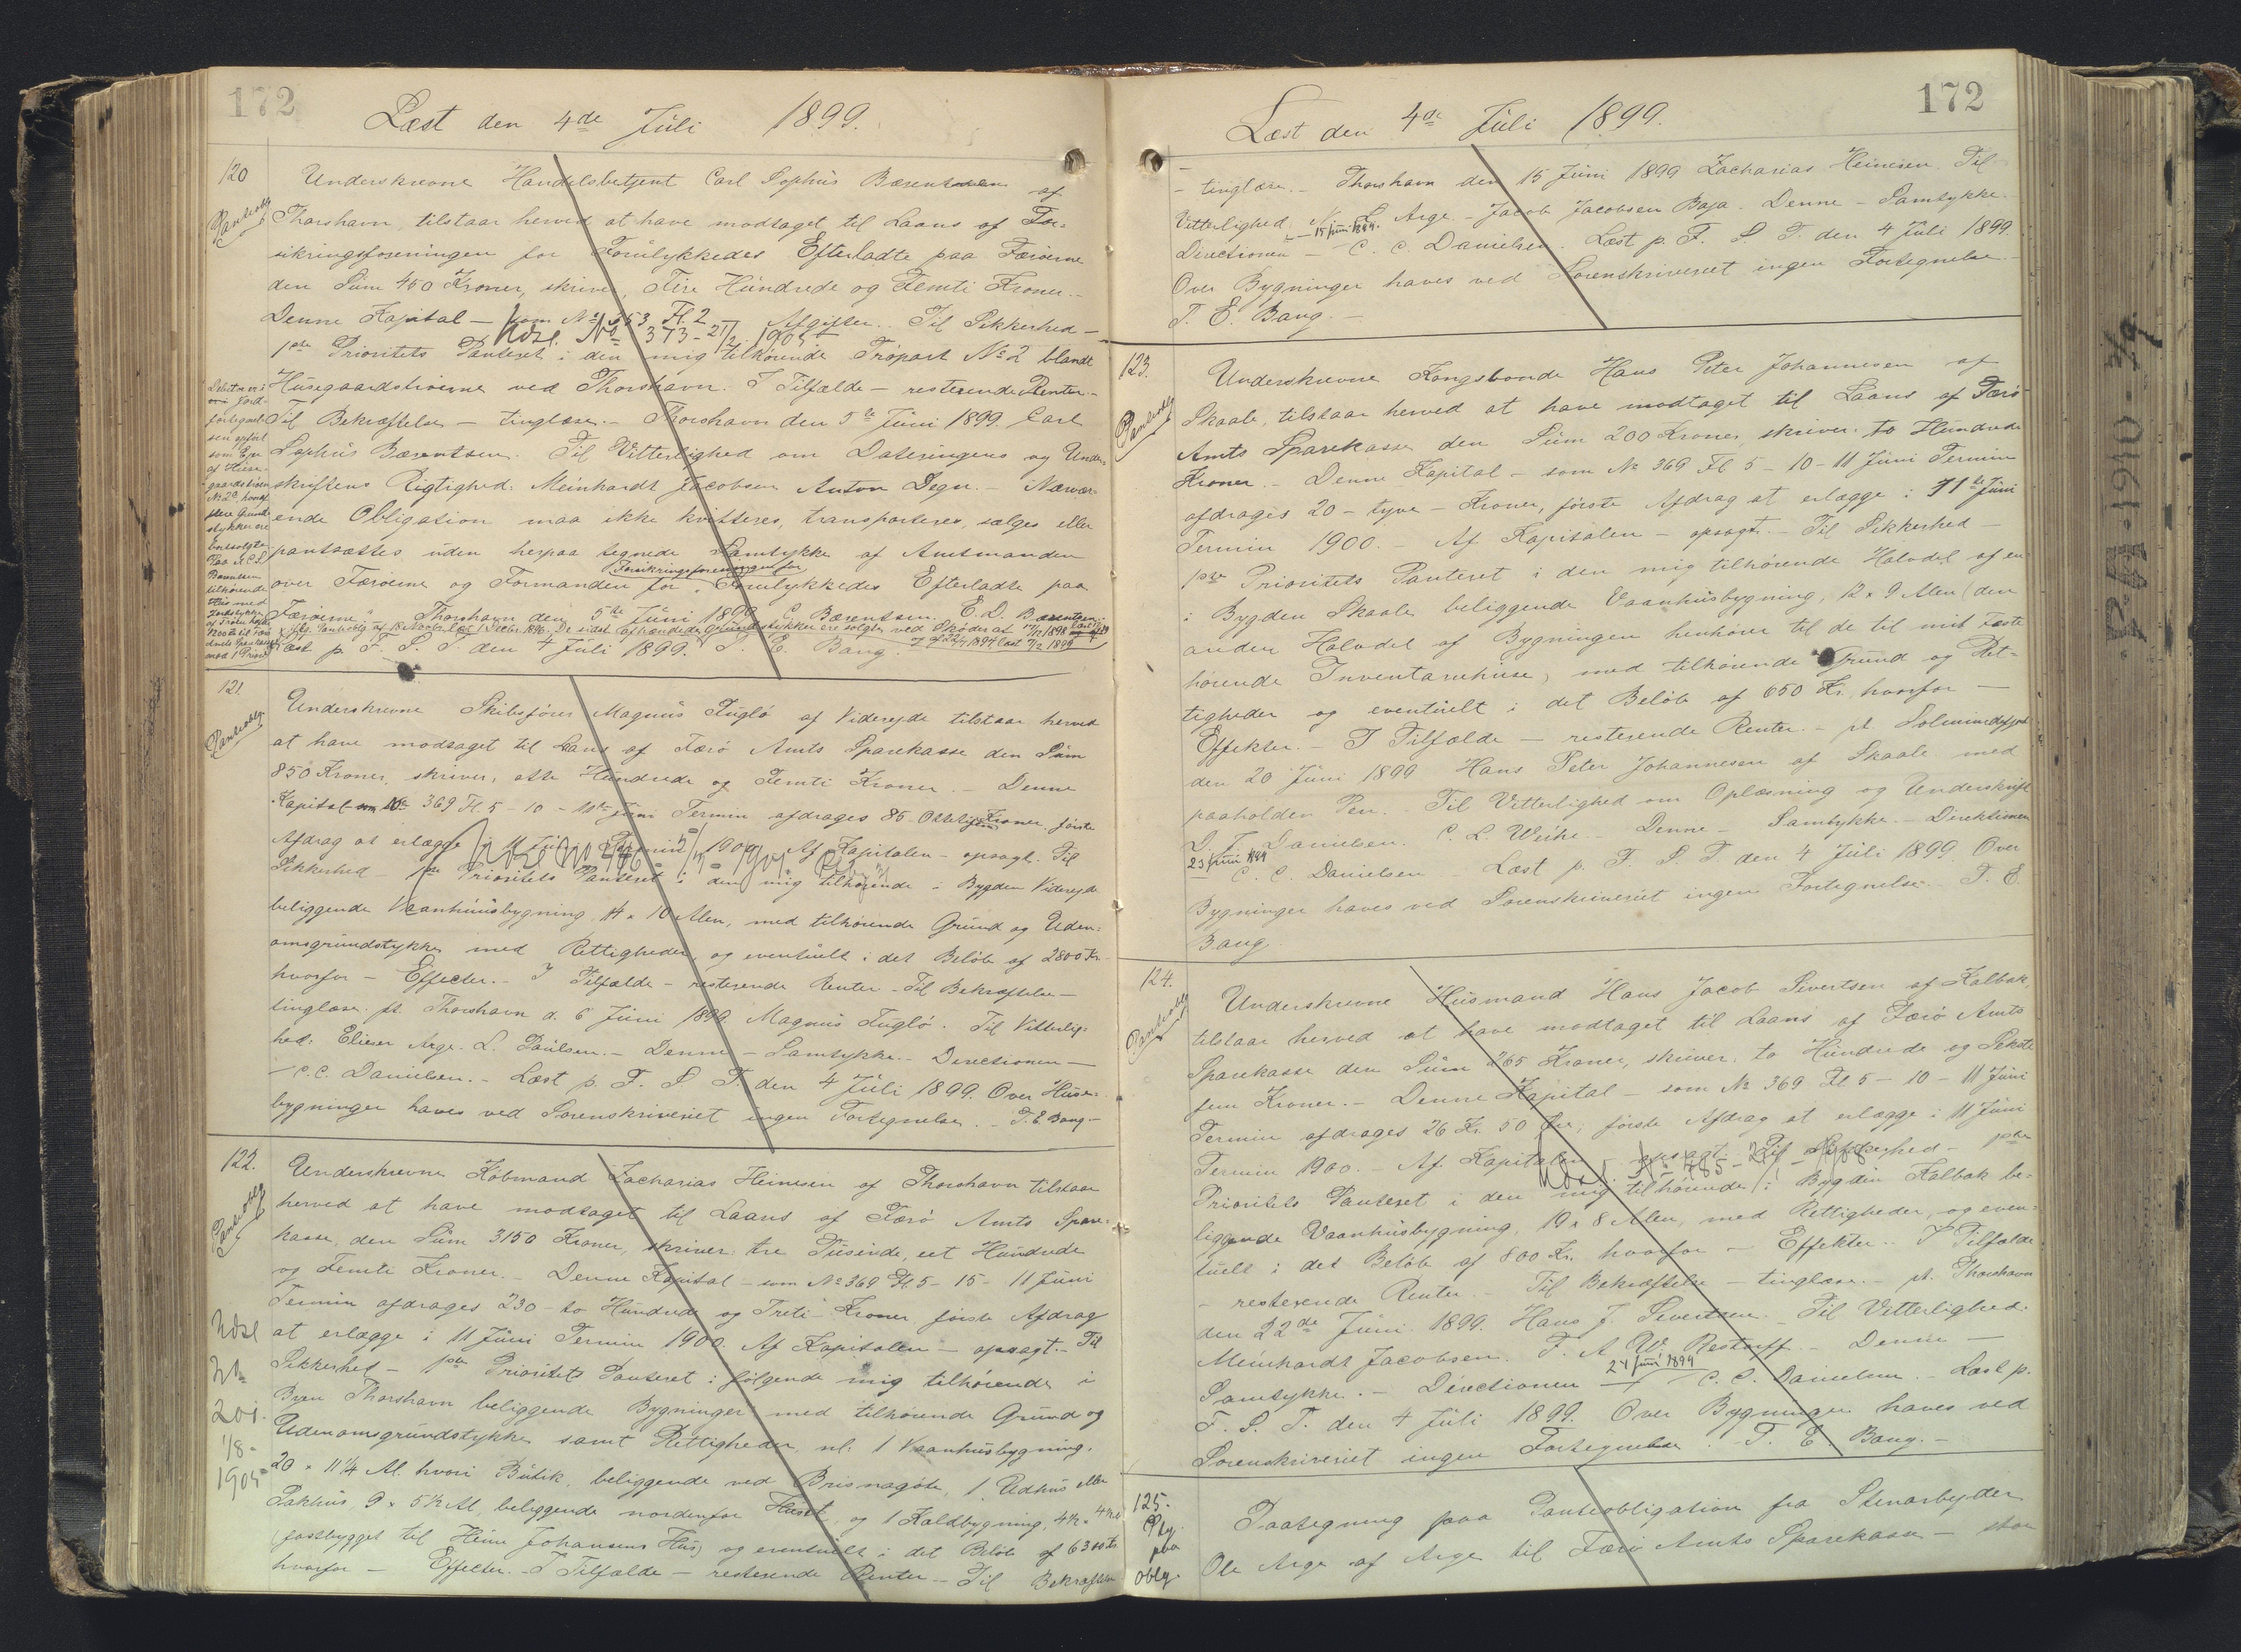 172
Læst den 4de Juli 1899.
120
Panteoblg
Underskrevne Handelsbetjent Carl Sophus Bærentsen af
Thorshavn, tilstaar herved at have modtaget til Laans af For-
sikringsforeningen for Forulykkedes Efterladte paa Færøerne
den Sum 450 Kroner, skriver, Fire Hundrede og Femti Kroner.-
Denne Kapital - som No 353 Fl. 2 Afgifter. Til Sikkerhed -
Udsl. No 373 - 21/2 1905
1ste Prioritets Panteret i den mig tilhørende Tröpart No 2 blandt
Husegaardströerne ved Thorshavn. I Tilfælde - resterende Renter.-
Til Bekræftelse - tinglæse.- Thorshavn den 5te Juni 1899. Carl
Sophus Bærentsen. Til Vitterlighed om Dateringens og Under-
skriftens Rigtighed: Meinhardt Jacobsen Anton Degn. - Nærvær-
ende Obligation maa ikke kvitteres, transporteres, sælges eller
pantsættes uden herpaa tegnede Samtykke af Amtmanden
Forsikringsforeningen for
over Færøerne og Formanden for "Forulykkedes Efterladte paa
Færøerne". Thorshavn den 5te Juni 1899 C. Bærentsen. E. D. Bærentsen
Læst p. F. S. T. den 4 Juli 1899. T. E. Bang.
121.
Panteoblg.
Underskrevne Skibsfører Magnus Fuglö af Viderejde tilstaar herved
at have modtaget til Laans af Færö Amts Sparekasse den Sum
850 Kroner, skriver, otte Hundrede og Femti Kroner. - Denne
Kapital som No 369 Fl. 5 - 10 - 11te Juni Termin afdrages 85 - Ottetifem Kroner, første
Afdrag at erlægge i 11 Juni Termin 1900. Af Kapitalen - opsagt. Til
Sikkerhed - 1ste Prioritets Panteret i den mig tilhørende i Bygden Viderejde
beliggende Vaanhuusbygning, 14 x 10 Alen, med tilhørende Grund og Uden-
omsgrundstykke med Rettigheder, og eventuelt i det Beløb af 2800 Kr.
hvorfor - Effecter. - I Tilfælde - resterende Renter - Til Bekræftelse -
tinglæse. pt. Thorshavn d. 6 Juni 1899 Magnus Fuglö. Til Vitterlig-
hed: Elieser Arge. L. Poulsen. - Denne - Samtykke. - Directionen -
- C.C. Danielsen. - Læst p. F. S. T. den 4 Juli 1899. Over Huse-
bygninger haves ved Sorenskriveriet ingen Fortegnelse. - T. E. Bang. -
122.
Panteoblg
Underskrevne Købmand Zacharias Heinesen af Thorshavn tilstaar
herved at have modtaget til Laans af Færö Amts Spare-
kasse, den Sum 3150 Kroner, skriver: tre Tusinde, eet Hundrede
og Femti Kroner. - Denne Kapital - som No 369 Fl. 5 - 15 - 11 Juni
Termin afdrages 230 - to Hundrede og Treti - Kroner, første Afdrag
at erlægge i 11 Juni Termin 1900. Af Kapitalen - opsagt. - Til
Udsl
No
201.
1/8 -
1905
Sikkerhed - 1ste Prioritets Panteret i følgende mig tilhørende i
Byen Thorshavn beliggende Bygninger med tilhørende Grund og
Udenomsgrundstykke samt Rettigheder, nl: 1 Vaanhusbygning,
20 x 11 1/4 Al. hvori Butik, beliggende ved Brisnagöte, 1 Udhus eller
Pakhus, 9 x 5 1/2 Al, beliggende nordenfor Huset, og 1 Kaldbygning, 4 1/2 x 4 1/2 Al
fastbygget til Heine Johansens Hus, og eventuelt i det Beløb af 6300 Kr
hvorfor - Effecter. - I Tilfælde - resterende Renter - Til Bekræftelse
172
Læst den 4de Juli 1899.
- tinglæse. - Thorshavn den 15 Juni 1899 Zacharias Heinesen. Til
Vitterlighed: N. L. Arge. - Jacob Jacobsen Baja. Denne - Samtykke.
15 Juni 1899.
Directionen - C. C. Danielsen. Læst p. F. S. T. den 4 Juli 1899.
Over Bygninger haves ved Sorenskriveriet ingen Fortegnelse. -
T. E. Bang. -
123.
Panteoblg
Underskrevne Kongsbonde Hans Peter Johannesen af
Skaale, tilstaar herved at have modtaget til Laans af Færö
Amts Sparekasse den Sum 200 Kroner, skriver: to Hundrede
Kroner. - Denne Kapital - som No 369 Fl 5 - 10 - 11 Juni Termin
afdrages 20 - tyve - Kroner, første Afdrag at erlægge i 11te Juni
Termin 1900. - Af Kapitalen - opsagt. - Til Sikkerhed -
1ste Prioritets Panteret i den mig tilhørende Halvdel af en
i Bygden Skaale beliggende Vaanhusbygning, 12 x 9 Alen (den
anden Halvdel af Bygningen henhører til de til mit Fæste
hørende Inventariehuse), med tilhørende Grund og Ret-
tigheder og eventuelt i det Beløb af 650 Kr. hvorfor -
Effekter. - I Tilfælde - resterende Renter. - pt. Solmundefjord
den 20 Juni 1899 Hans Peter Johannesen af Skaale med
paaholden Pen. Til Vitterlighed om Oplæsning og Underskrift
D. F. Danielsen. C. L. Weihe. - Denne - Samtykke. - Direktionen
23 Juni 1899
C. C. Danielsen - Læst p. F. S. T. den 4 Juli 1899. Over
Bygninger haves ved Sorenskriveriet ingen Fortegnelse. T. E.
Bang.
124.
Panteoblg
Underskrevne Husmand Hans Jacob Sivertsen af Kalbak,
tilstaar herved at have modtaget til Laans af Færö Amts
Sparekasse den Sum 265 Kroner, skriver: to Hundrede og Seksti
fem Kroner. - Denne Kapital - som No 369 Fl 5 - 10 - 11 Juni
Termin afdrages 26 Kr. 50 Øre, første Afdrag at erlægge i 11 Juni
Termin 1900. Af Kapitalen - opsagt. Til Sikkerhed - 1ste
Prioritets Panteret i den mig tilhørende i Bygden Kalbak be-
liggende Vaanhusbygning, 10 x 8 Alen, med Rettigheder, og even-
tuelt i det Beløb af 800 Kr. hvorfor - Effekter. - I Tilfælde
- resterende Renter. - Til Bekræftelse - tinglæse. - pt. Thorshavn
den 22de Juni 1899. Hans J. Sivertsen. Til Vitterlighed:
Meinhardt Jacobsen. F. A. W. Restorff. - Denne -
24 Juni 1899
Samtykke. - Directionen - C. C. Danielsen. - Læst p.
F. S. T. den 4 Juli 1899. Over Bygninger haves ved
Sorenskriveriet ingen Fortegnelse. - T. E. Bang. -
125.
Ptg.
paa
oblg.
Paategning paa Panteobligation fra Stenarbejder
Ole Arge af Arge til Færö Amts Sparekasse - stor